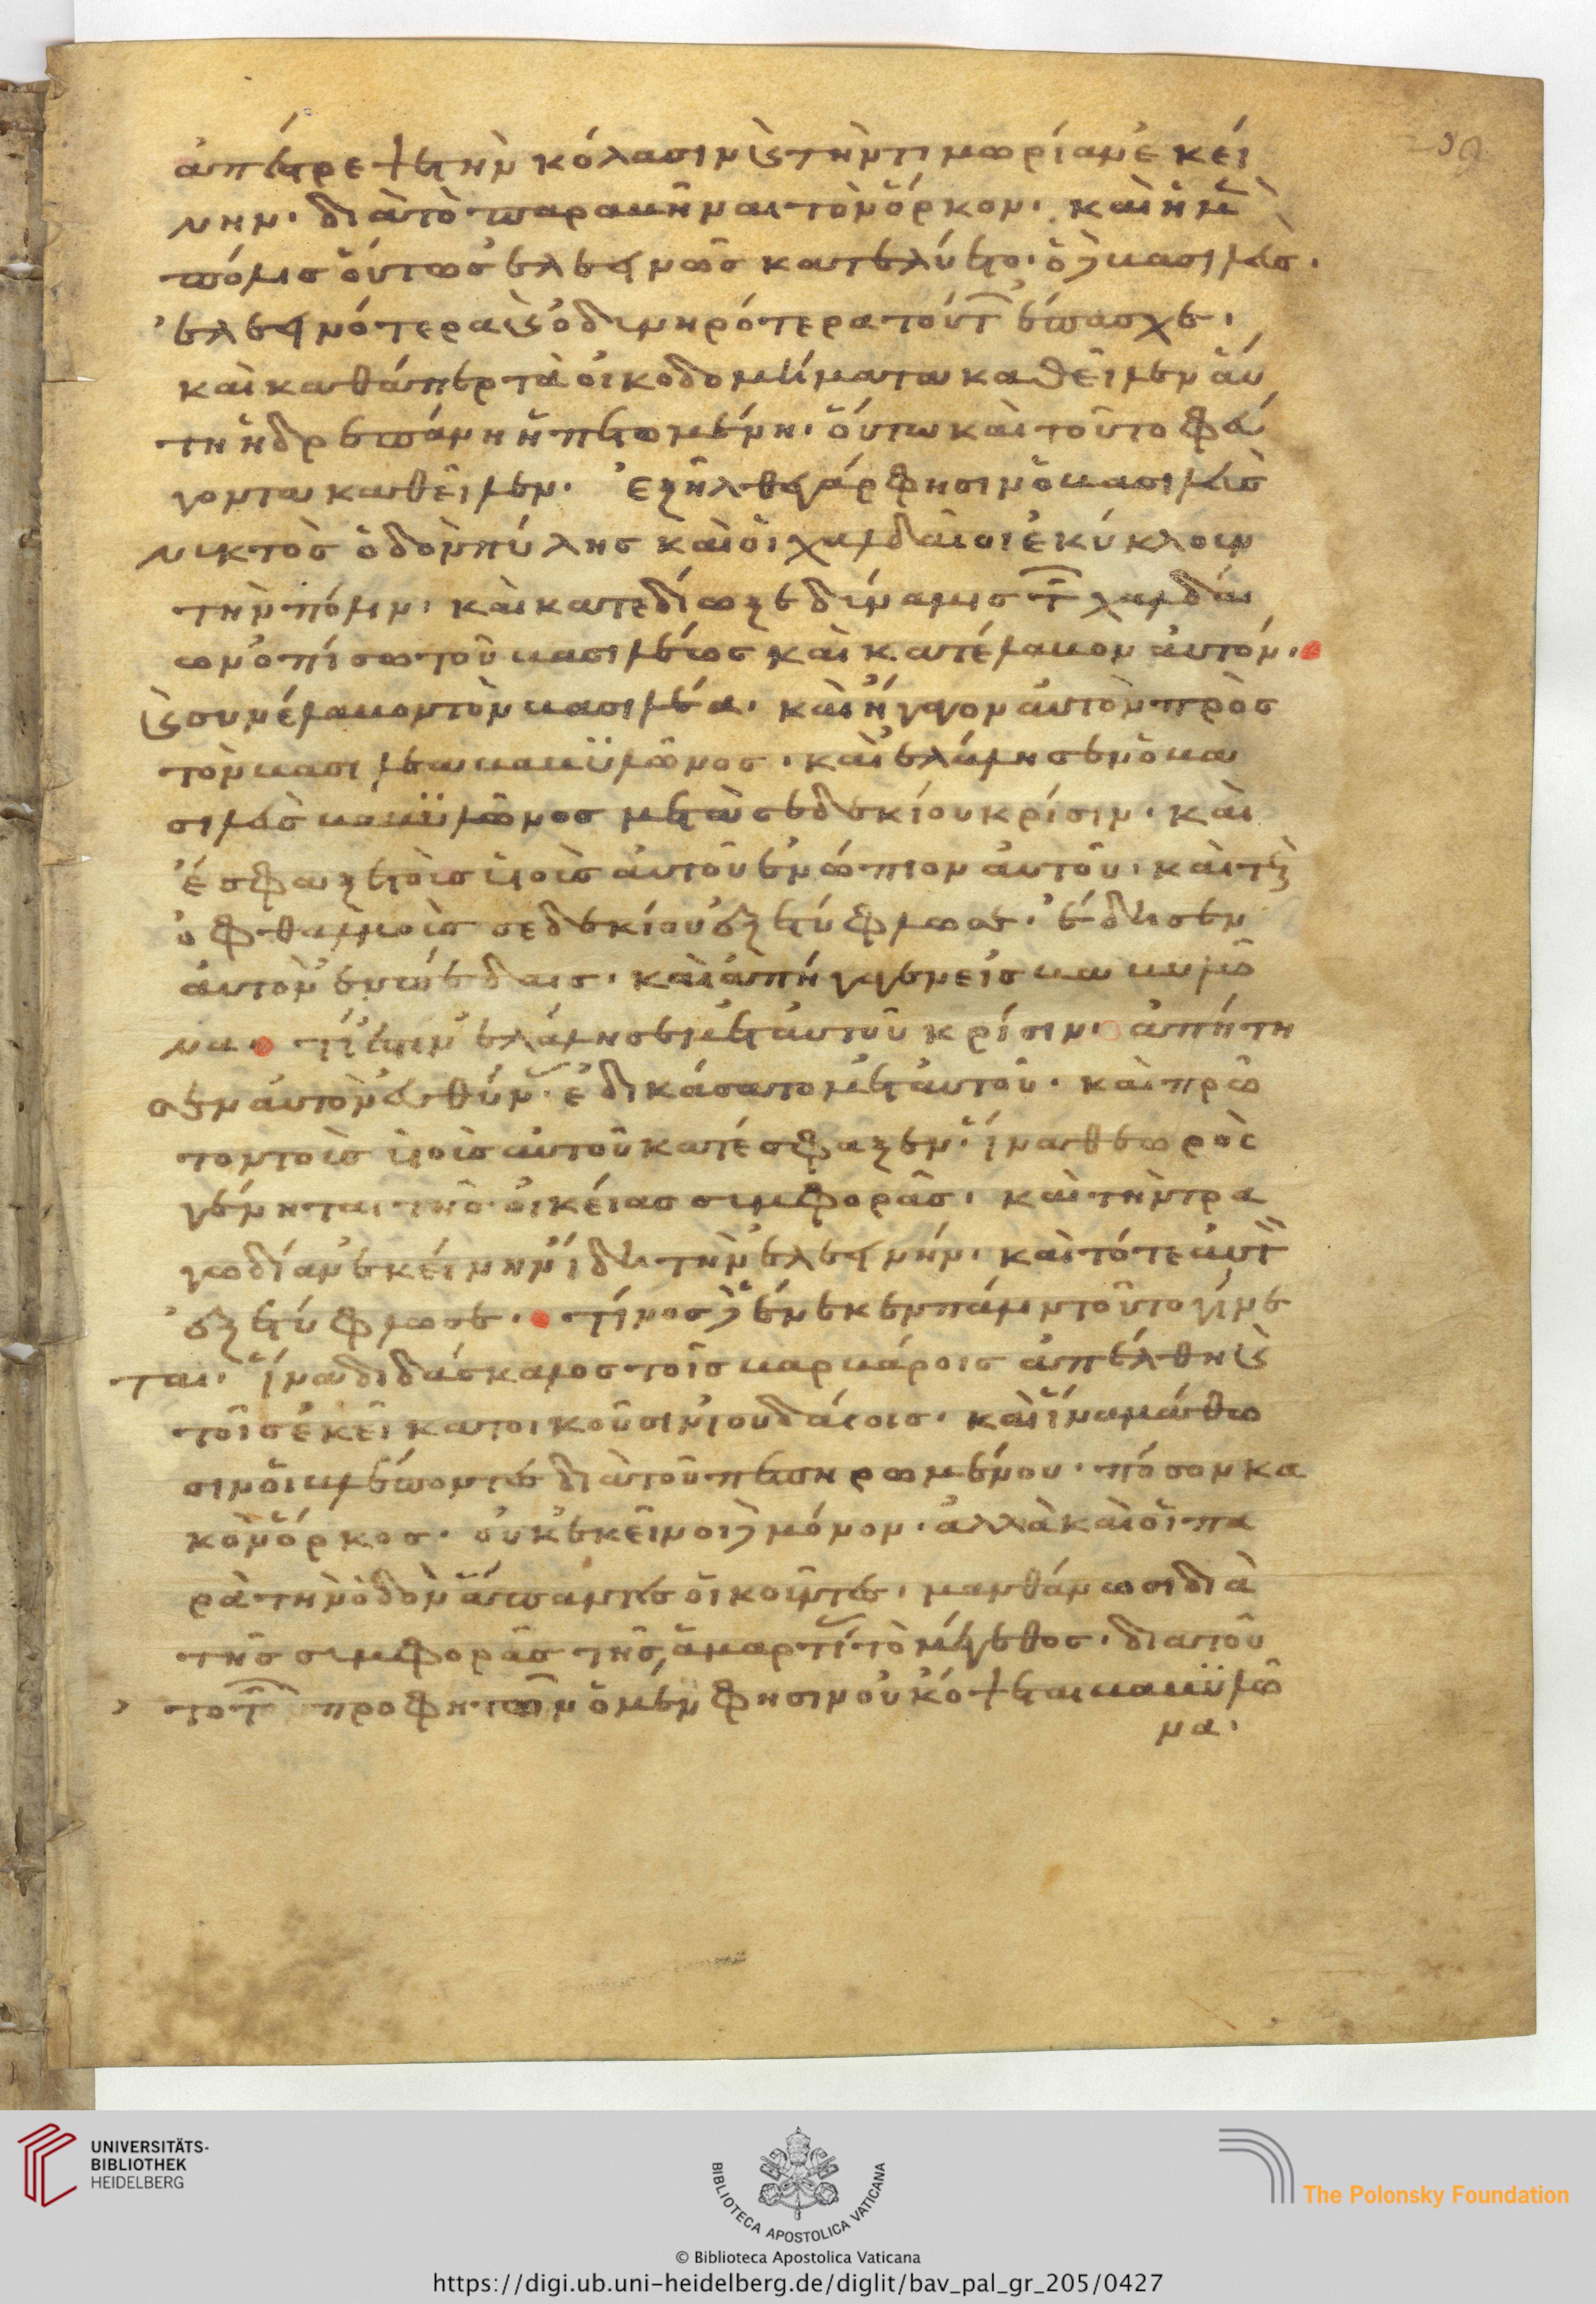 ἀπέτρεψε τὴν κόλασιν καὶ τὴν τιμωρίαν ἐκεί
νην· διὰ τὸ παραβῆναι τὸν ὅρκον· καὶ ἡ μὲν
πόλις οὕτως ἐλεεινῶς κατελύετο· ὁ δὲ βασιλεὺς·
ἐλεεινότερα καὶ ὀδυνηρότερα τούτων ἔπασχε·
καὶ καθάπερ τὰ οἰκοδομήματα καθεῖλεν αὐ
τὴ ἡ δρεπάνη ἡ πετομένη· οὕτω καὶ τοῦτο φεύ
γοντα καθεῖλεν· ἐξῆλθε γάρ φησιν ὁ βασιλεὺς
νυκτὸς ὁδὸν πύλης καὶ οἱ χαλδαῖοι ἐκύκλουν
τὴν πόλιν· καὶ κατεδίωξε δύναμις τῶν χαλδαί
ων ὀπίσω τοῦ βασιλέως καὶ κατέλαβον αὐτόν·
καὶ συνέλαβον τὸν βασιλέα· καὶ ἤγαγον αὐτὸν πρὸς
τὸν βασιλέα βαβυλῶνος· καὶ ἐλάλησεν ὁ βα
σιλεὺς βαβυλῶνος μετὰ σεδεκίου κρίσιν· καὶ
ἔσφαξε τοὺς υἱοὺς αὐτοῦ ἐνώπιον αὐτοῦ· καὶ τοὺς
ὀφθαλμοὺς σεδεκίου ἐξετύφλωσε· ἔδησεν
αὐτὸν ἐν πέδαις· καὶ ἀπήγαγεν εἰς βαβυλῶ
να· τί ἐστιν ἐλάλησε μετ' αὐτοῦ κρίσιν· ἀπῄτη
σεν αὐτὸν εὐθύνας· ἐδικάσατο μετ' αὐτοῦ· καὶ πρῶ
τον τοὺς υἱοὺς αὐτοῦ κατέσφαξεν· ἵνα θεωρὸς
γένηται τῆς οἰκείας συμφορᾶς· καὶ τὴν τρα
γωδίαν ἐκείνην ἴδη τὴν ἐλεεινήν· καὶ τότε αὐτὸν
ἐξετύφλωσε· τίνος δὲ ἕνεκεν πάλιν τοῦτο γίνε
ται· ἵνα διδάσκαλος τοῖς βαρβάροις ἀπέλθη καὶ
τοῖς ἐκεῖ κατοικοῦσιν ἰουδαίοις· καὶ ἵνα μάθω
σιν οἱ βλέποντες διὰ τοῦ πεπηρωμένου· πόσον κα
κὸν ὅρκος· οὐκ ἐκεῖνοι δὲ μόνον· ἀλλὰ καὶ οἱ πα
ρὰ τὴν ὁδὸν ἅπαντες οἰκοῦντες· μανθάνωσι διὰ
τῆς συμφορᾶς τῆς ἁμαρτίας τὸ μέγεθος· διὰ τοῦ
το τῶν προφητῶν ὁ μέν φησιν οὐκ ὄψεται βαβυλῶ
να·
UNIVERSITÄTS-
BIBLIOTHEK
HEIDELBERG
BIBLIOTECA APOSTOLICA VATICANA
The Polonsky Foundation
© Biblioteca Apostolica Vaticana
https://digi.ub.uni-heidelberg.de/diglit/bav_pal_gr_205/0427